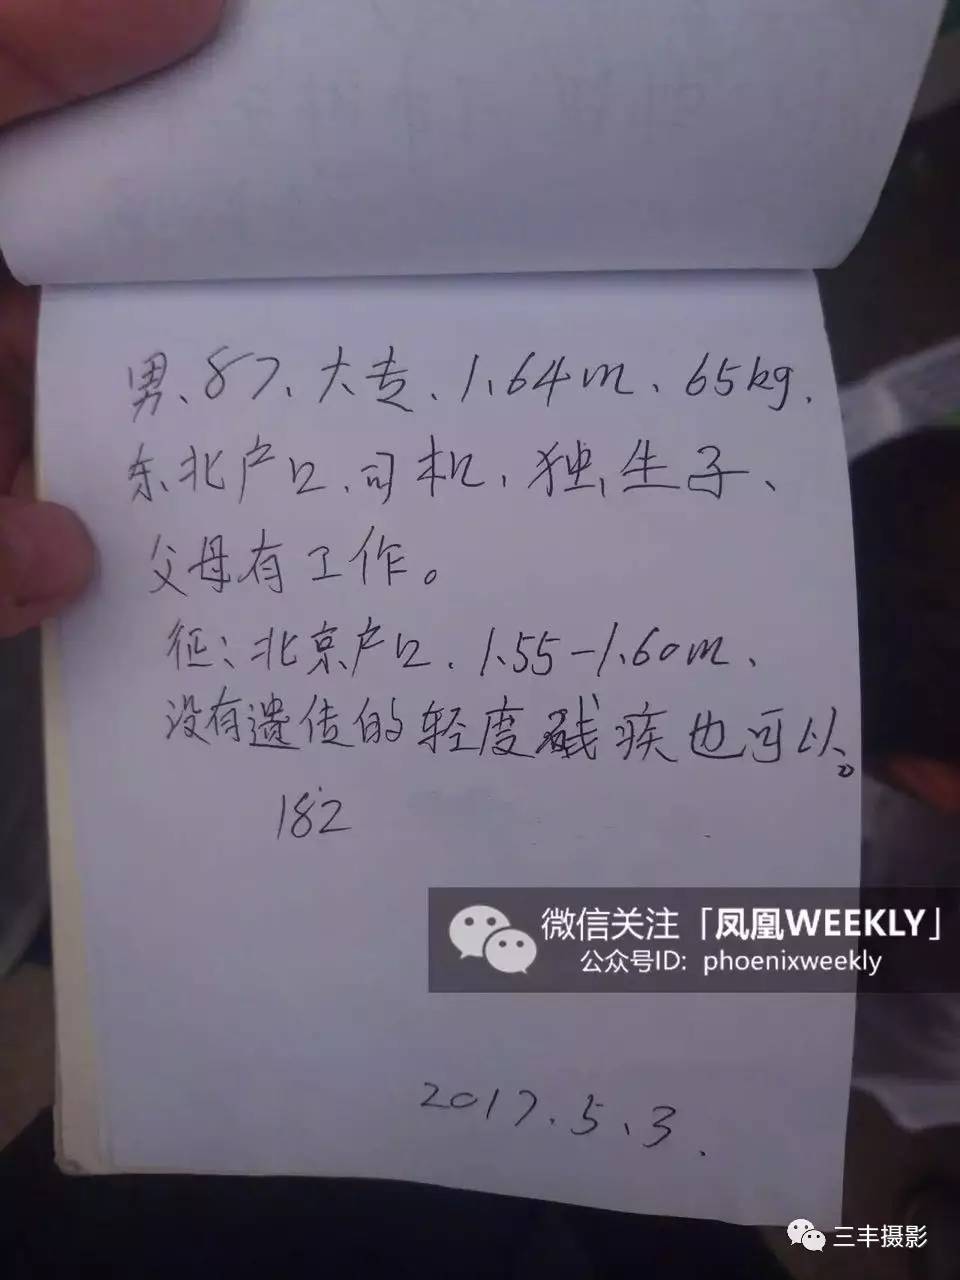 男、87、大专、1.64m、65kg.
东北户口、司机、独生子、
父母有工作。
征:北京户口、1.55-1.60m、
没有遗传的轻度残疾也可以。
182
微信关注「凤凰WEEKLY」
公众号ID: phoenixweekly
2017.5.3.
三丰摄影